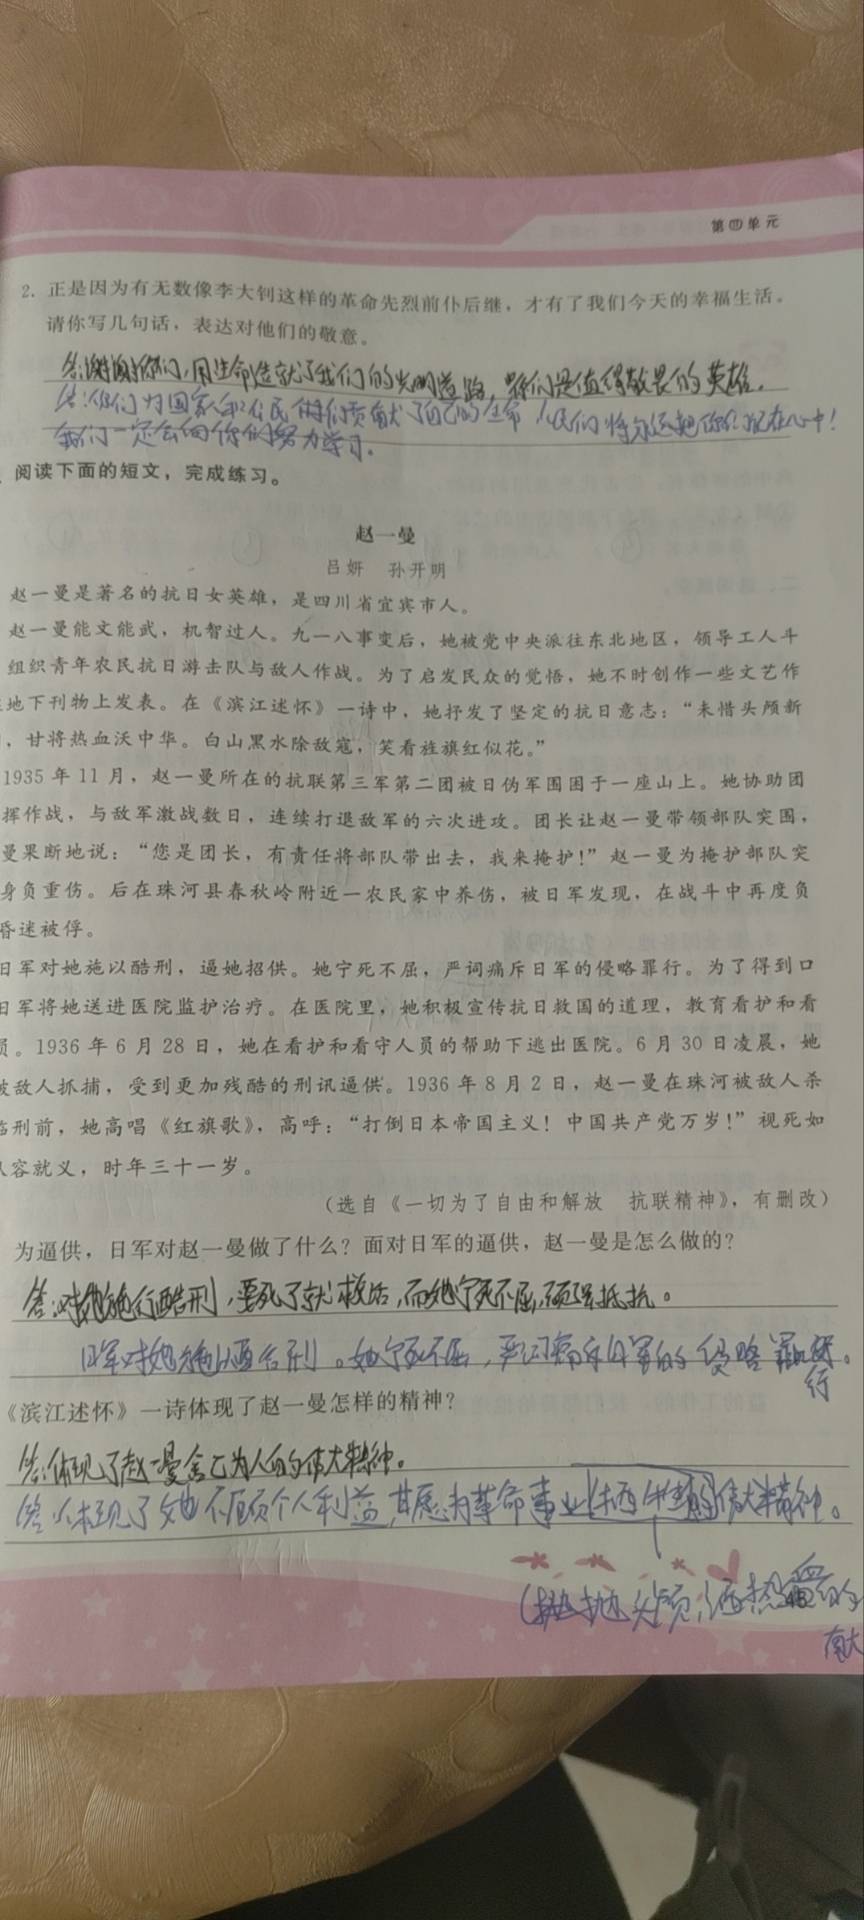 第四单元
2. 正是因为有无数像李大钊这样的革命先烈前仆后继，才有了我们今天的幸福生活。
请你写几句话，表达对他们的敬意。
答：谢谢你们，用生命造就了我们的光明道路，你们是值得敬畏的英雄。
答：你们为国家和人民 贡献了自己的生命，我们将永远把你们记在心中！
我们一定会向你们努力学习。
阅读下面的短文，完成练习。
赵一曼
吕妍 孙开明
赵一曼是著名的抗日女英雄，是四川省宜宾市人。
赵一曼能文能武，机智过人。九一八事变后，她被党中央派往东北地区，领导工人斗
组织青年农民抗日游击队与敌人作战。为了启发民众的觉悟，她不时创作一些文艺作
地下刊物上发表。在《滨江述怀》一诗中，她抒发了坚定的抗日意志：“未惜头颅新
，甘将热血沃中华。白山黑水除敌寇，笑看旌旗红似花。”
1935 年 11 月，赵一曼所在的抗联第三军第二团被日伪军围困于一座山上。她协助团
挥作战，与敌军激战数日，连续打退敌军的六次进攻。团长让赵一曼带领部队突围，
曼果断地说：“您是团长，有责任将部队带出去，我来掩护！”赵一曼为掩护部队突
身负重伤。后在珠河县春秋岭附近一农民家中养伤，被日军发现，在战斗中再度负
昏迷被俘。
日军对她施以酷刑，逼她招供。她宁死不屈，严词痛斥日军的侵略罪行。为了得到口
日军将她送进医院监护治疗。在医院里，她积极宣传抗日救国的道理，教育看护和看
员。1936 年 6 月 28 日，她在看护和看守人员的帮助下逃出医院。6 月 30 日凌晨，她
被敌人抓捕，受到更加残酷的刑讯逼供。1936 年 8 月 2 日，赵一曼在珠河被敌人杀
临刑前，她高唱《红旗歌》，高呼：“打倒日本帝国主义！中国共产党万岁！”视死如
从容就义，时年三十一岁。
（选自《一切为了自由和解放 抗联精神》，有删改）
为逼供，日军对赵一曼做了什么？面对日军的逼供，赵一曼是怎么做的？
答：对她施行酷刑，要死了就救活，而她宁死不屈，顽强抵抗。
日军对她施以酷刑。她宁死不屈，严词痛斥日军的侵略罪
行
《滨江述怀》一诗体现了赵一曼怎样的精神？
答：体现了赵一曼舍己为人的伟大精神。
答：体现了她不顾个人利益，甘愿为革命事业牺牲的伟大精神。
（抛头颅，洒热血的